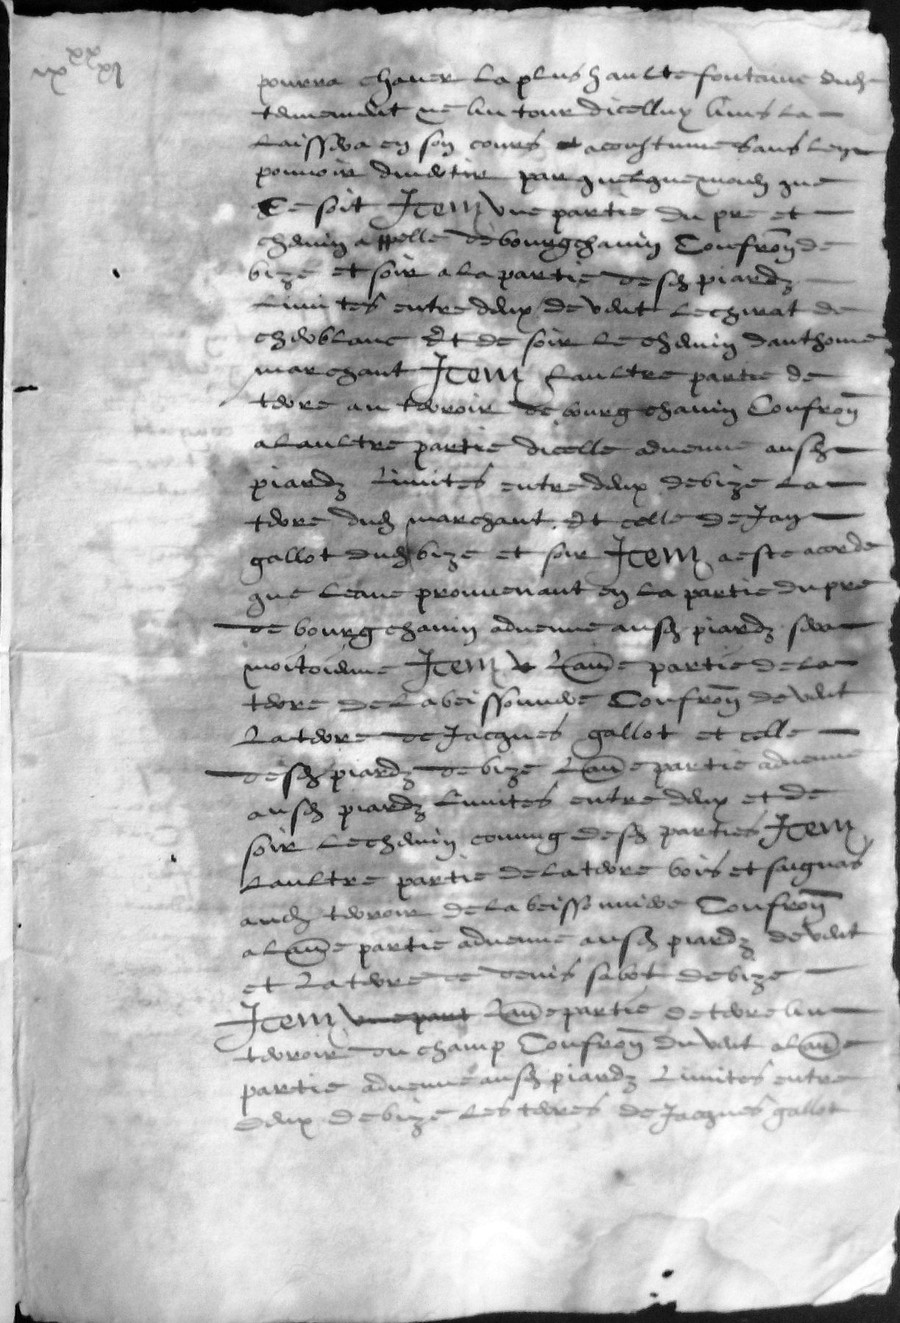 pourra chaver la plus haulte fontaine dud
tenement ne lintour dicelluy lims la
laissera en son cours et acoustume sans leur
pouvoir divertir par quelque moien que
Ce soit Item une partie du pre et
chenin appelle de bourgchanin Confron de
bize et soir a la partie desd piardz
limites entre deux de vent le chirat de
cherblanc Et de soir le chemin danthoine
marchant Item laultre partie de
terre au terroir de bourgchanin Confron
a laultre partie dicelle advenue ausd
piardz limites entre deux de bize la
terre dud marchant Et celle de Jan
gallot dud bize et soir Item a este acorde
que leaue provenant en la partie du pre
de bourgchanin advenue ausd piardz sera
moitoienne Item lau͠e partie de la
terre de la beissonniere Confron de vent
la terre de Jacques gallot et celle
desd piardz de bize lau͠e partie advenue
ausd piardz limites entre deux et de
soir le chemin commg desd parties Item
laultre partie de la terre bois et saignas
aud terroir de la beissonniere Confron
a lau͠e partie advenue ausd piardz de vent
et la terre de denis sabot de bize
Item une part lau͠e partie de terre
terroir du champ Confron du vent a lau͠e
partie advenue ausd piardz limites entre
deux de bize les terres de Jacques gallot